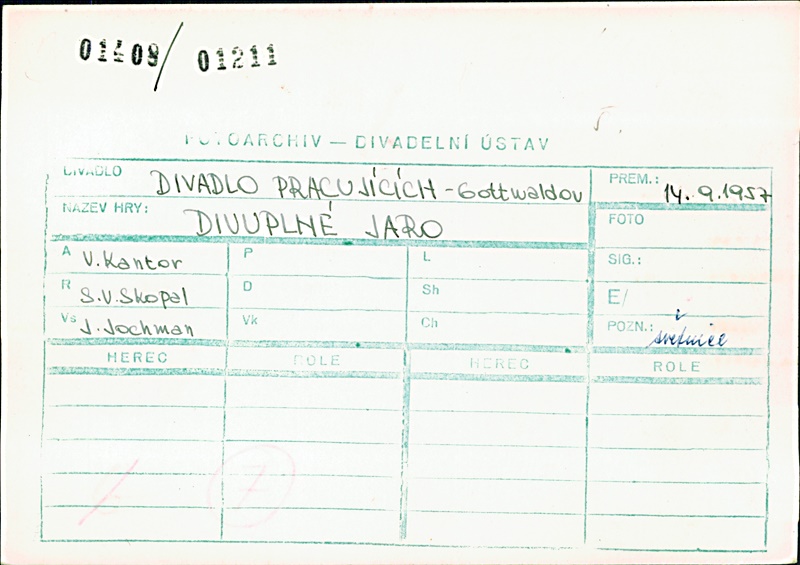 01408/01211
FOTOARCHIV — DIVADELNÍ ÚSTAV
DIVADLO DIVADLO PRACUJÍCÍCH - Gottwaldov PREM.: 14. 9. 1957
NÁZEV HRY: DIVUPLNÉ JARO FOTO
A V. Kantor P L SIG.:
R S.V. Skopal D Sh E/
Vs J. Jochman Vk Ch POZN.:
HEREC ROLE HEREC ROLE